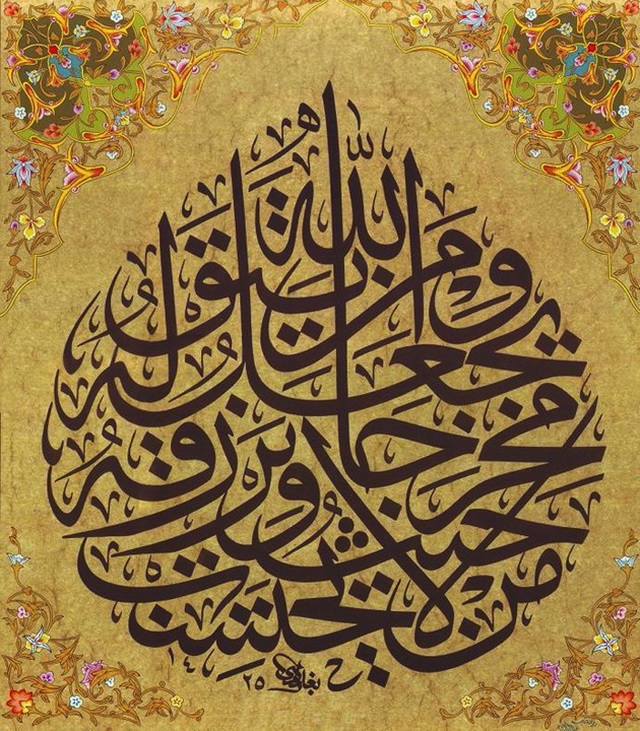 ومن يتق الله يجعل له مخرجا
ويرزقه من حيث لا يحتسب
١٤٢٥